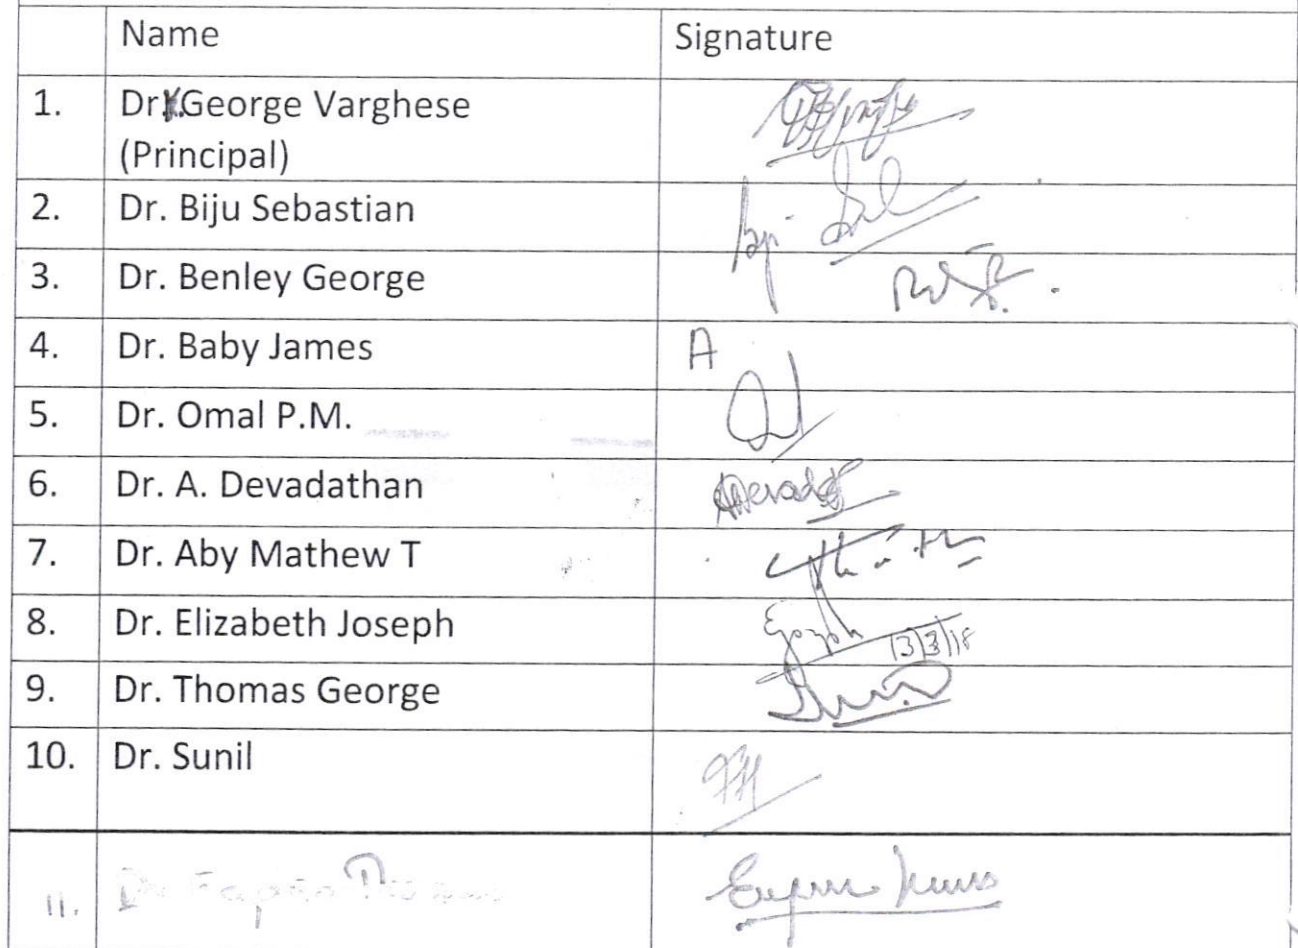 Name Signature
1. Dr.K.George Varghese
(Principal)
2. Dr. Biju Sebastian
3. Dr. Benley George
4. Dr. Baby James A
5. Dr. Omal P.M.
6. Dr. A. Devadathan
7. Dr. Aby Mathew T
8. Dr. Elizabeth Joseph 13/3/18
9. Dr. Thomas George
10. Dr. Sunil
11. Dr